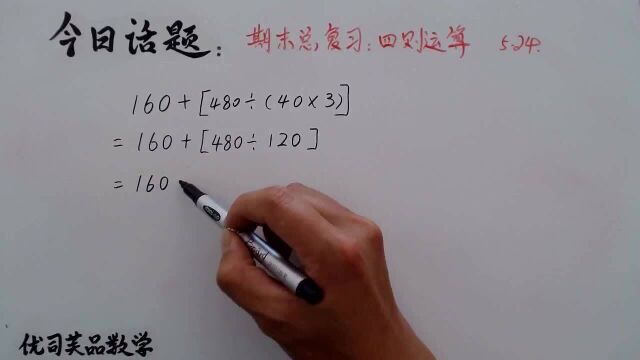 今日话题： 期末总复习：四则运算 5.24.
160+[480÷(40×3)]
=160+[480÷120]
=160
优司芙品数学